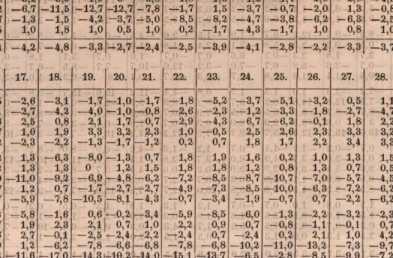 −6,7 −11,5 −12,7 −2,7
−1,3 −1,5 −4,2 −3,7 −5,0 −8,5 −8,2 −4,7 −3,8 −6,2 −6,3 −2,5
1,0 1,8 1,0 0,5 1,0 0,2 −1,7 −4,3 −1,7 1,0 0,8 1,0
−4,2 −4,8 −3,3 −2,7 −2,4 −2,5 −3,9 −4,1 −2,8 −2,2 −3,3 −3,7
17. 18. 19. 20. 21. 22. 23. 24. 25. 26. 27. 28.
−2,6 −3,1 −1,7 −1,0 −1,7 −1,8 −5,2 −3,7 −5,1 −3,2 0,5 1,1
−2,7 −4,3 −4,0 −1,0 −0,8 −2,6 −2,3 −1,2 −3,3 −1,8 −2,7 −4,7
2,5 0,8 2,1 1,7 0,7 −2,9 −4,3 −6,7 −6,2 −0,1 1,8 2,
1,0 1,9 3,3 3,2 2,3 1,0 −0,5 2,5 2,6 2,3 3,3 3,2
−2,3 −2,2 −1,3 −1,7 −1,2 0,2 0,7 1,8 1,7 2,2 3,4 3,3
1,3 −6,3 −8,0 −1,3 0,7 1,8 1,9 1,6 0,2 1,0 1,3 1,5
1,3 1,3 0 1,2 1,5 1,8 1,8 1,2 0,8 1,3 0,7 0,5
−11,0 −9,2 −6,9 −4,8 −6,2 −7,2 −8,5 −8,7 −10,7 −7,0 −5,7 −4,2
1,2 0,7 −1,7 −2,7 −2,7 −4,9 −7,3 −8,5 −10,0 −6,3 −7,2 −6,2
−5,9 −7,8 −10,5 −8,1 −4,3 −0,7 −3,4 −1,9 −0,7 0,7 −2,2 −7,2
−5,8 −1,6 0,6 −0,2 −3,4 −5,9 −8,5 −6,0 −1,3 −2,2 −3,2 −2,
1,9 2,3 2,1 0,7 1,0 2,2 0,9 −0,7 −0,8 −1,1 −0,1 0,7
2,7 −0,1 −2,5 −2,4 −2,2 −2,4 0,7 −2,4 0,2 2,1 1,0 4,
1,2 −6,2 −7,8 −6,6 −6,8 −7,8 −6,8 −10,2 −11,0 −13,2 −7,3 −9,
−11,6 −17,0 −14,3 −10,2 −14,0 −15,1 −13,7 −6,5 −2,8 −8,5